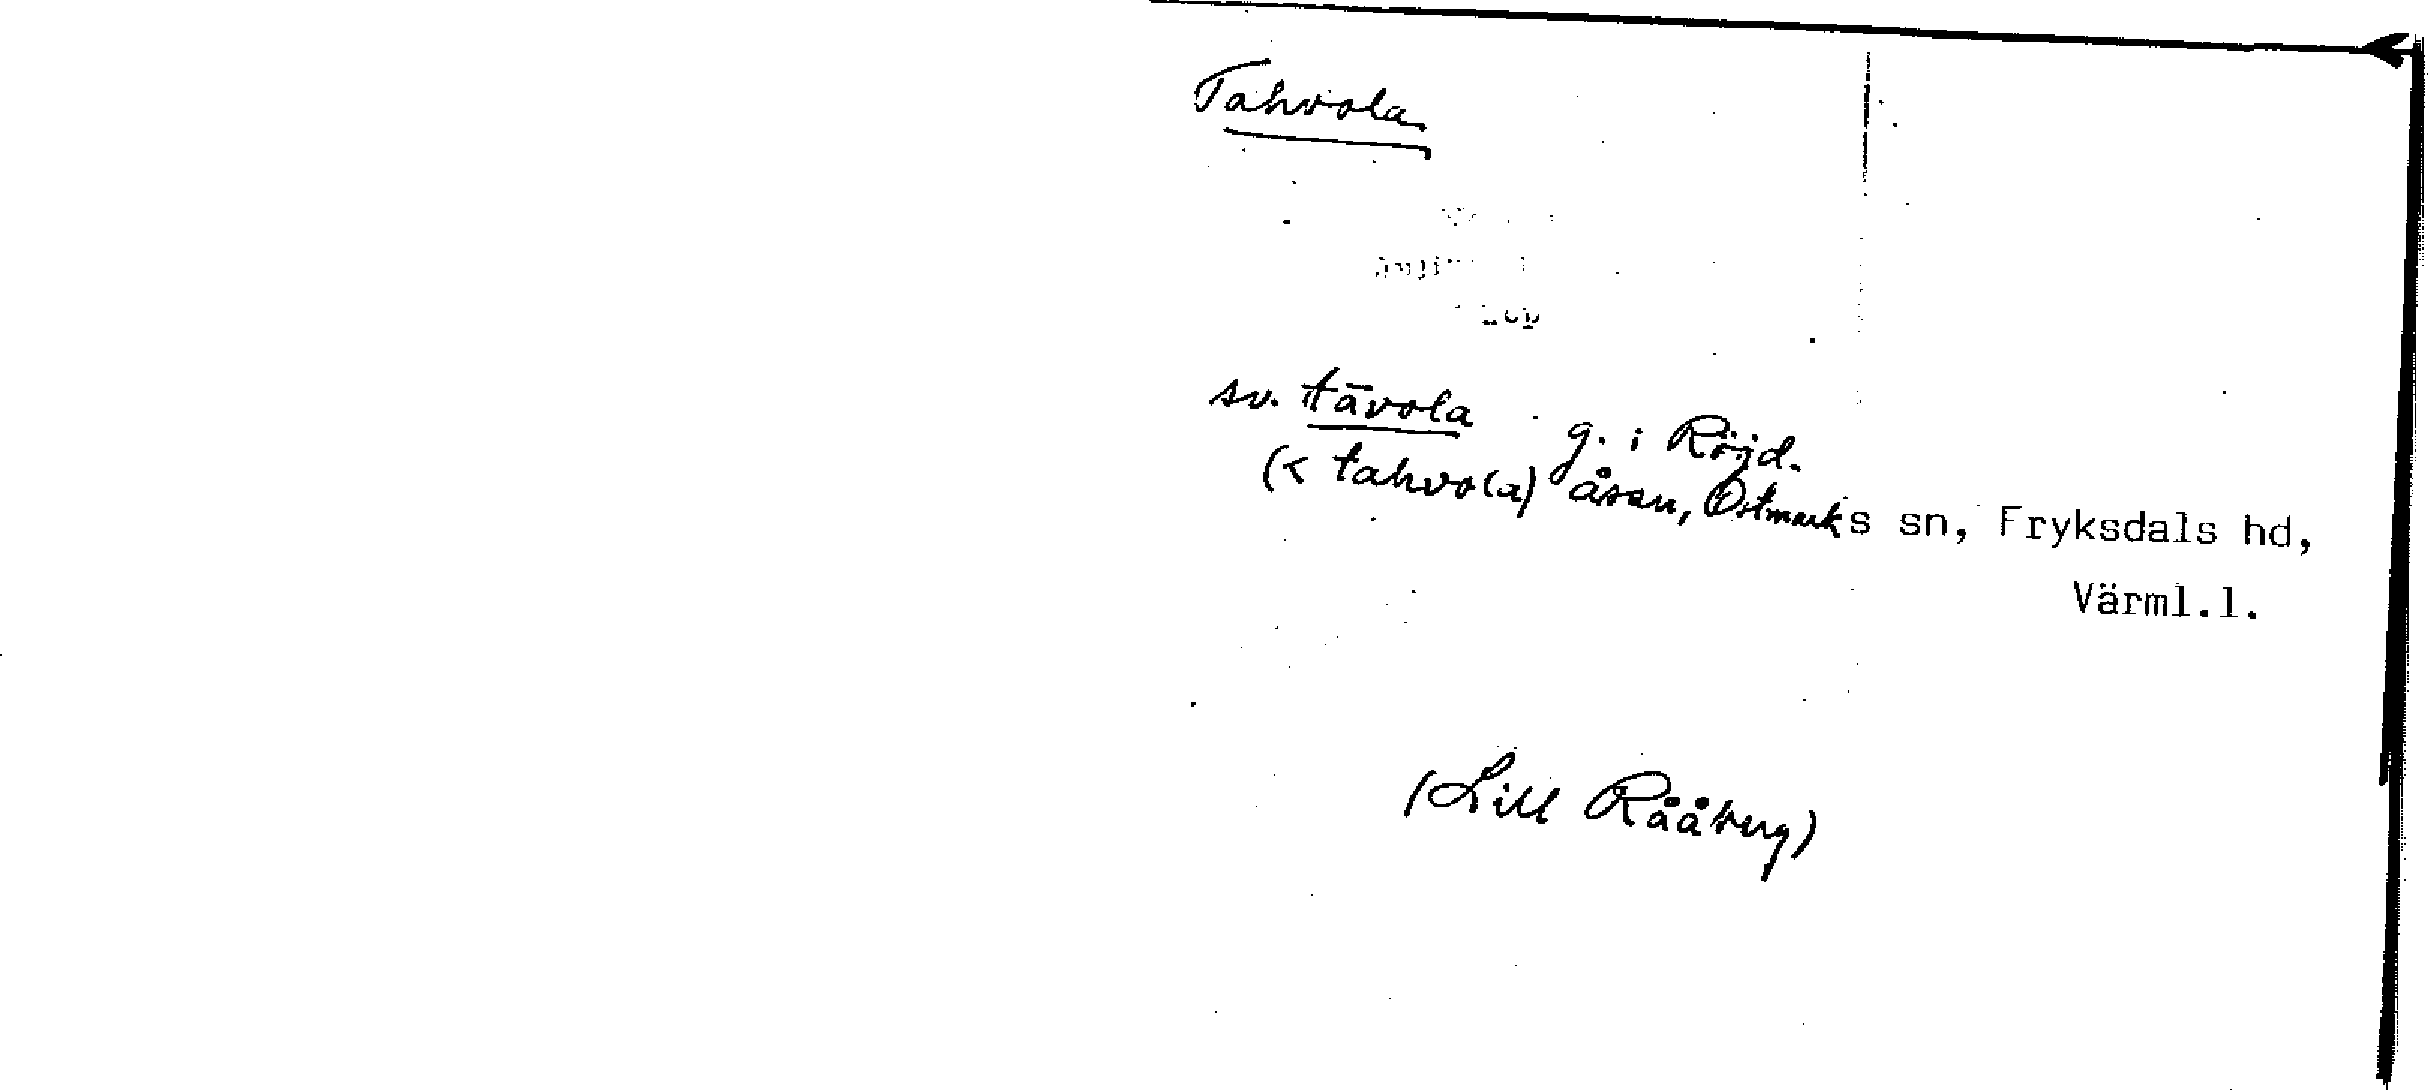 Tahvola
sv. tāvola g. i Röjd.
(< tahvola) åsen, Östmarks sn, Fryksdals hd,
Värml.l.
(Lill Rååberg)